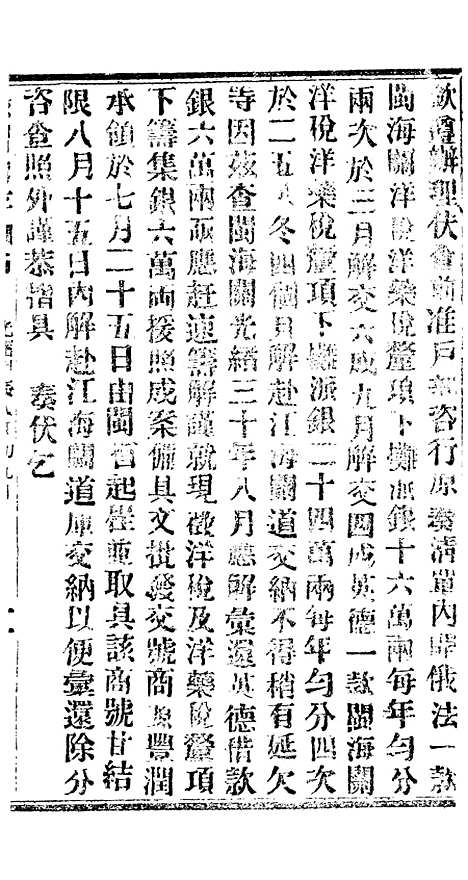 欽遵辦理伏查前准戶部咨行原奏清單內開俄法一款
閩海關洋稅洋藥稅釐項下攤派銀十六萬兩每年勻分
兩次於三月解交六成九月解交四成英德一款閩海關
洋稅洋藥稅釐項下攤派銀二十四萬兩每年勻分四次
於二五八冬四個月解赴江海關道交納不得稍有延欠
等因茲查閩海關光緒三十年八月應解彙還英德借款
銀六萬兩亟應赶速籌解謹就現徵洋稅及洋藥稅釐項
下籌集銀六萬兩援照成案備具文批發交號商源豐潤
承領於七月二十五日由閩省起程並取具該商號甘結
限八月十五日內解赴江海關道庫交納以便彙還除分
咨查照外謹恭摺具 奏伏乞